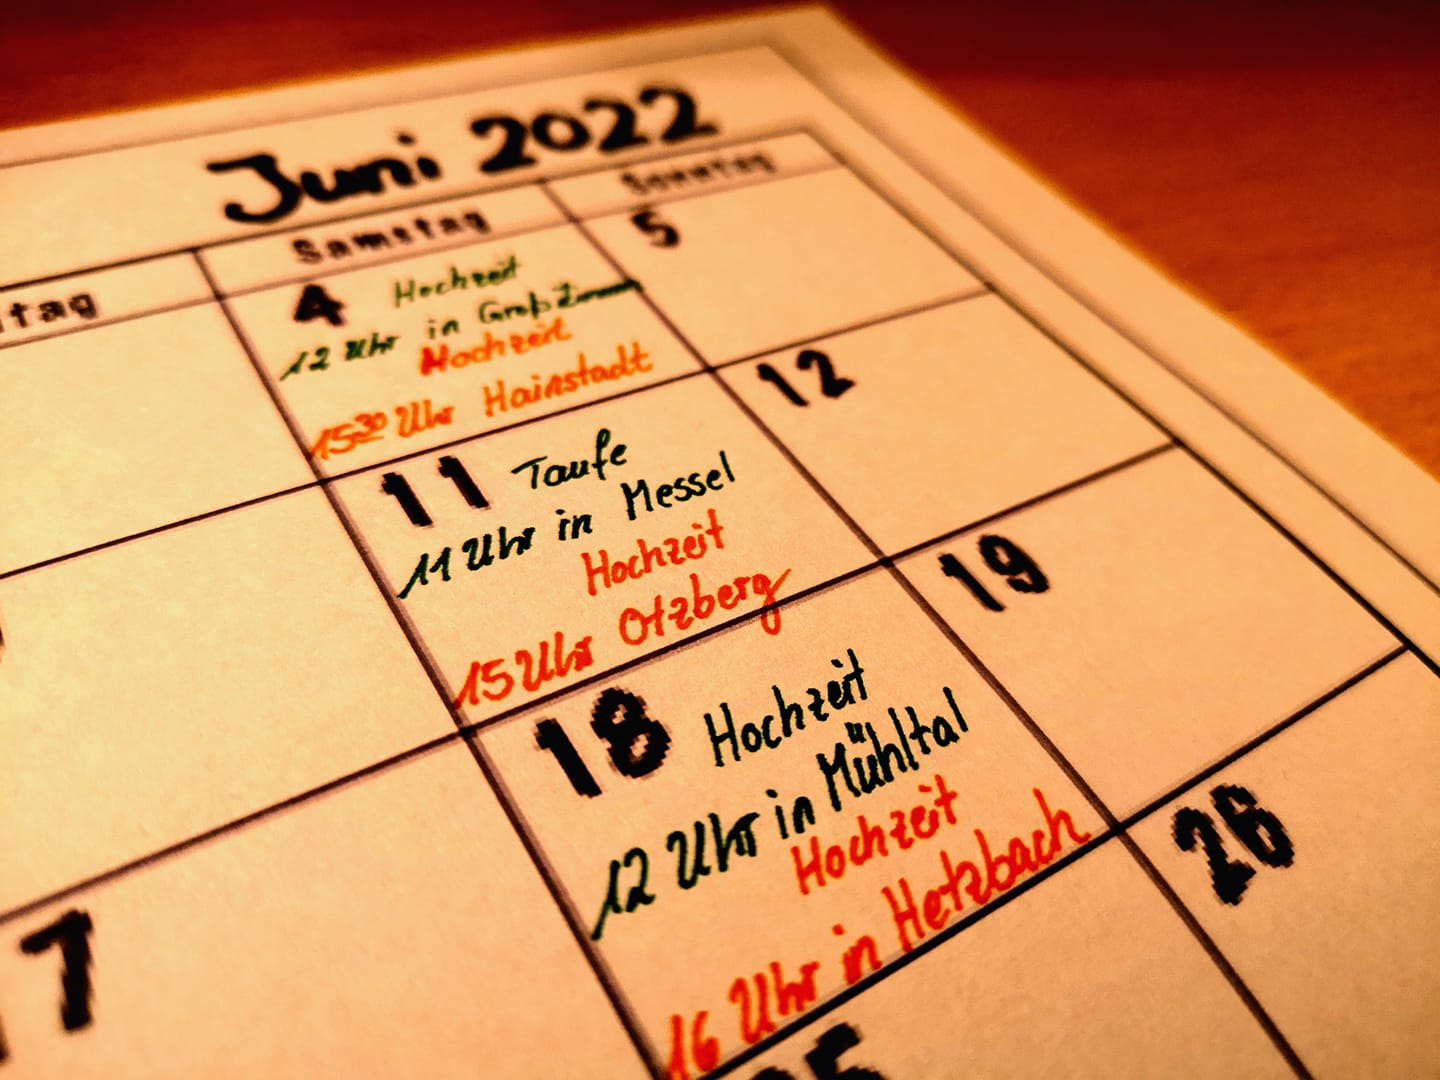 Juni 2022
tag Samstag Sonntag
4 Hochzeit
12 Uhr in Groß
Hochzeit
15³⁰ Uhr Hainstadt
5
11 Taufe
11 Uhr in Messel
Hochzeit
15 Uhr Otzberg
12
18 Hochzeit
12 Uhr in Mühltal
Hochzeit
16 Uhr in Hetzbach
19
7
25
26